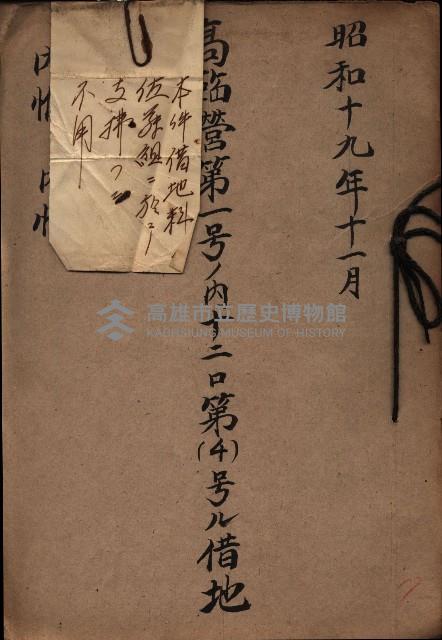 昭和十九年十一月
高臨營第一号ノ内十二ロ第(4)号ル借地
本件借地料
佐藤組ニ於テ
支拂フニ
不用
高雄市立歷史博物館
KAOHSIUNG MUSEUM OF HISTORY